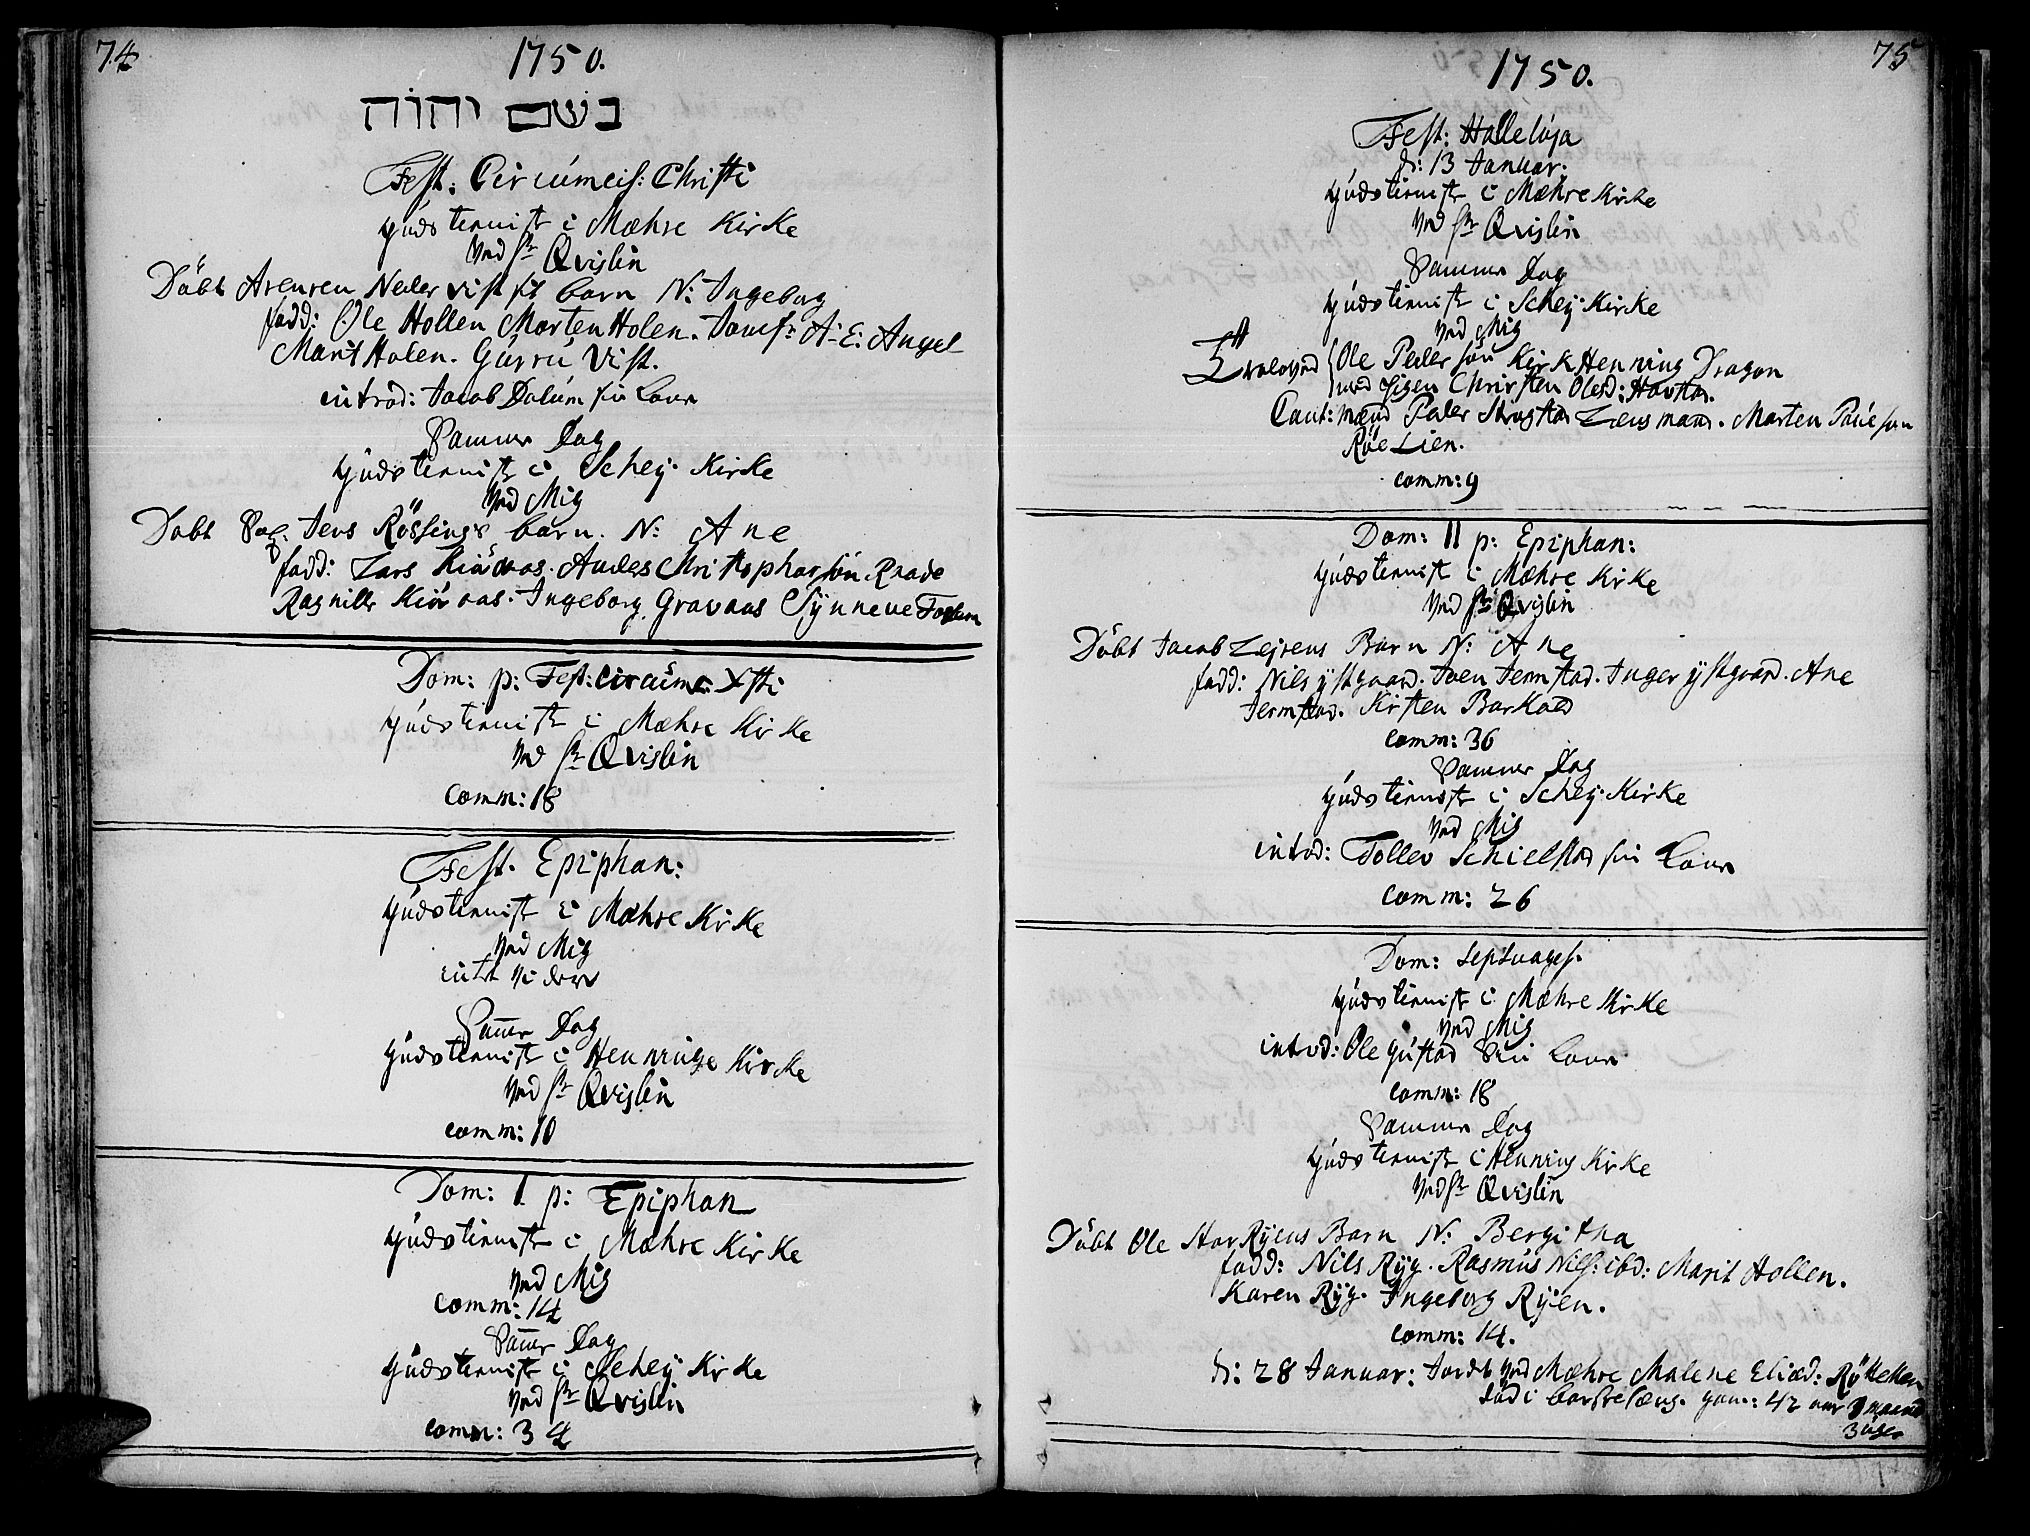 74
1750.
בשם יהוה
Fest: Circúmcis: Christi
Gúdstienist i Mæhre Kirke
Ved Hr Qvislin
Döbt Arensen Neder vist barn N: Ingeborg
fadd: Ole Hollen Morten Holen. Jomfr: A: E: Angel
Marit Holen. Gúrrú Vist.
introd: Jacob Dalúm sin Kone
Samme Dag
Gúdstienist i Schey Kirke
Ved Mig
Döbt Jens Rössings barn. N: Ane
fadd: Lars Kiöraas. Anders Christophersön
Ragnille Kiöraas. Ingeborg Gravaas Synneve
Dom: p: Fest: Circúmc: Xsti
Gúdstienist i Mæhre Kirke
Ved Hr Qvislin
comm: 18
Fest. Epiphan:
Gúdstienist i Mæhre Kirke
Ved Mig
Samme Dag
Gúdstienist i Henninge Kirke
Ved Hr Qvislin
comm: 10
Dom: 1 p: Epiphan
Gúdstienist i Mæhre Kirke
Ved Mig
comm: 14
Samme Dag
Gúdstienist i Schey Kirke
Ved Hr Qvislin
comm: 34
75
1750.
Fest: Hallelúja
d: 13 Januar:
Gúdstienist i Mæhre Kirke
Ved Hr Qvislin
Samme Dag
Gúdstienist i Schey Kirke
Ved Mig
Troloved Ole Pedersön Kirk Henning Dragon
med Pigen Christen Olesd: Hovstad.
Caut: mænd Peder Lensmand. Morten
Röe Lien.
comm: 9
Dom: 11 p: Epiphan:
Gúdstienist i Mæhre Kirke
Ved Hr Qvislin
Döbt Jacob Lejrens Barn N: Ane
fadd: Nils ystgaard. Joen Jermstad. Inger ystgaard. Ane
Jermstad. Kirsten Barkaed
comm: 36
Samme Dag
Gúdstienist i Schey Kirke
Ved Mig
introd: Tollev Schielstad sin Kone
comm: 26
Dom: septuages.
Gúdstienist i Mæhre Kirke
Ved Mig
introd: Ole Gústad sin Kone
comm: 18
Samme Dag
Gúdstienist i Henning Kirke
Ved Hr Qvislin
Döbt Ole Hav Ryens Barn N: Bergitha
fadd: Nils Ryg. Rasmús Nils: ibd: Marit Hollen.
Karen Ryg. Ingeborg Ryen.
comm: 14.
d: 28 Januar: Jordt Ved Mæhre Malene Eliæd:
död i barsel seng. gam: 42 aar 9 maaned
3 uger